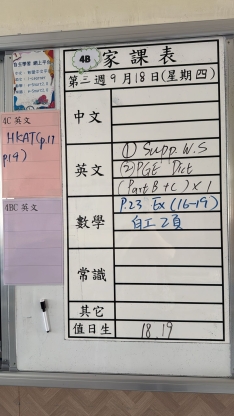 4B 家課表
第三週9月18日(星期四)
中文
英文
① Supp. W.S
(2) PGE Dict
(Part B + C) X 1
數學
P.23 Ex (16-19)
自工 2頁
常識
其它
值日生
18, 19
4C 英文
HKAT (p.17
p.19)
4BC 英文